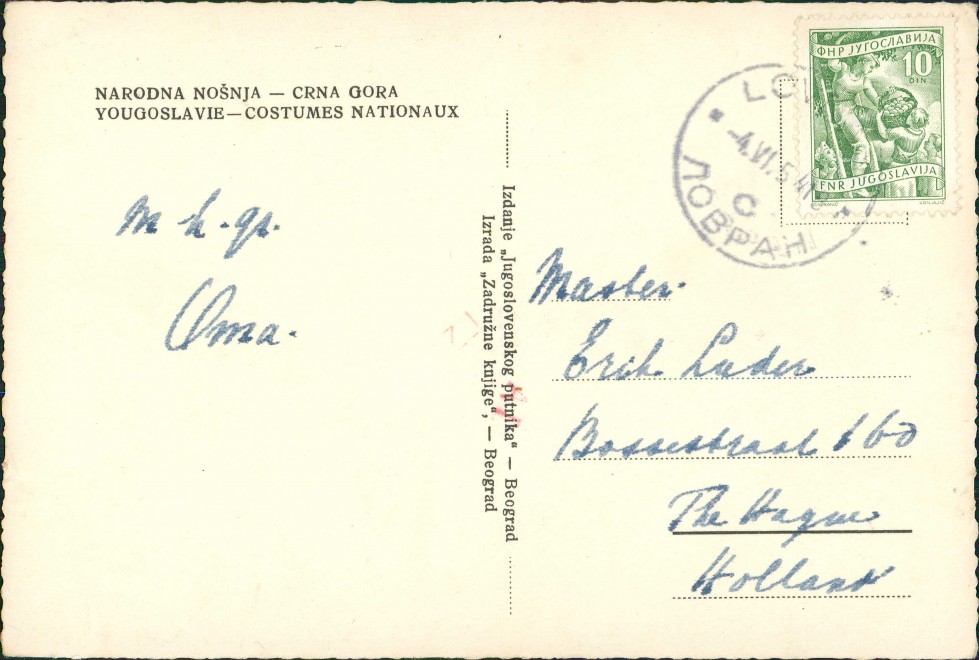 NARODNA NOŠNJA — CRNA GORA
YOUGOSLAVIE—COSTUMES NATIONAUX
m h. gr.
Oma.
Izdanje „Jugoslovenskog putnika“ — Beograd
Izrada „Zadružne knjige“, — Beograd
ФНР ЈУГОСЛАВИЈА
10
DIN
FNR JUGOSLAVIJA
ЛОВРАН
Master.
Erik Luder
Bossestraat 160
The Hague
Holland